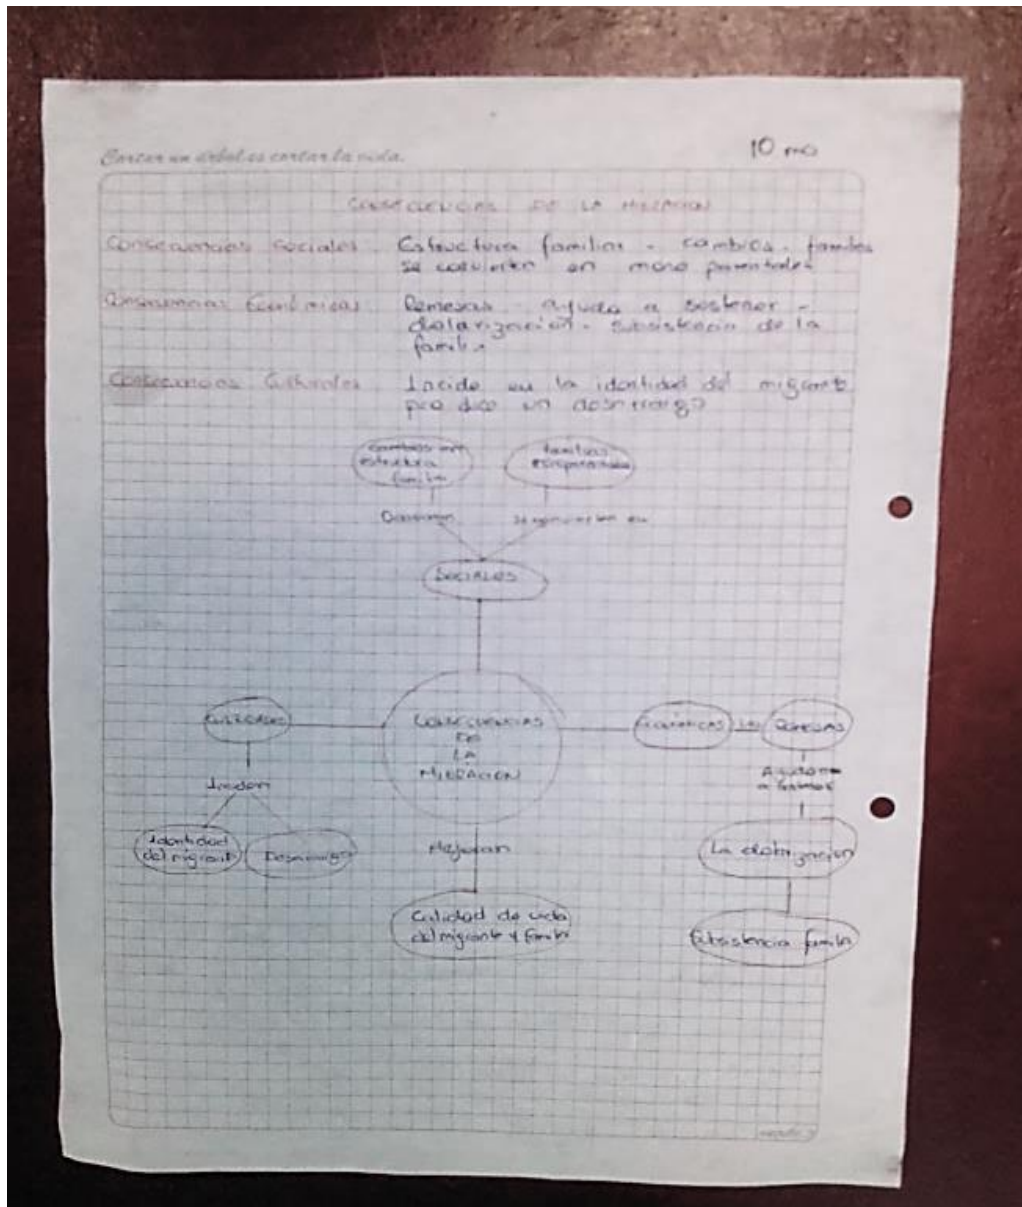 Cortar un árbol es cortar la vida.
10 mo
CONSECUENCIAS DE LA MIGRACION
Consecuencias sociales Estructura familiar - cambios - familias
se convierten en mono parentales
Consecuencias Económicas Remesas - ayuda a sostener -
dolarización - subsistencia de la
familia
Consecuencias Culturales Incide en la identidad del migrante
produce un desarraigo
Cambios
estructura
familia
familias
SOCIALES
CULTURALES
CONSECUENCIAS
DE
LA
MIGRACION
ECONÓMICAS
REMESAS
Inciden
Ayudan
a
Identidad
del migrante
Desarraigo
Mejoran
La dolarizacion
Calidad de vida
del migrante y familia
Subsistencia familia